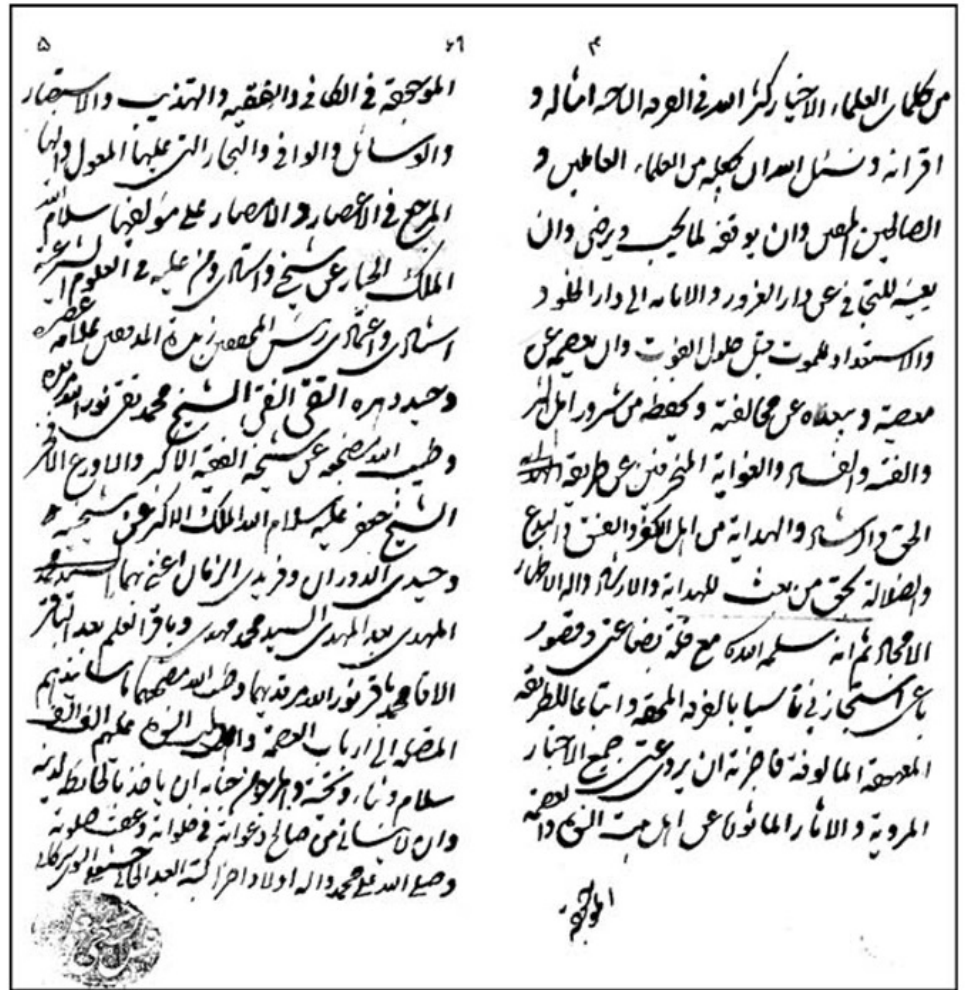 ۴
من كلمات العلماء الاخيار كثر الله فى الفرقة الناجية امثاله و
اقرانه و نسئل الله ان يجعله من العلماء العاملين و
الصالحين وان يوفقه لما يحب و يرضى وان
يعينه للتجافى عن دار الغرور والانابة الى دار الخلود
والاستعداد للموت قبل حلول الفوت وان يعصمه عن
معصيته و يبعده عن مخالفته و يحفظه من شرور اهل
والفتنة والفساد والغواية المنحرفين عن طريقة
الحق والرشاد والهداية من اهل الكفر والفسق والبدع
والضلالة بحق من بعث للهداية والارشاد واله الاطهار
الامجاد ثم انه سلمه الله مع قلة بضاعتى و قصور
باعى استجازنى تأسيا بالفرقة المحقة و اتباعا للطريقة
المألوفة فاجزته ان يروى عنى جميع الاخبار
المروية والاثار المأثورة عن اهل بيت
الموجهة
۶۱
۵
الموجهة فى الكافى والفقيه والتهذيب والاستبصار
والوسائل والوافى والبحار التى عليها المعول واليها
المرجع فى الأعصار والأمصار على مؤلفيها سلام الله
الملك الجبار عن شيخى واستادى ومن عليه فى العلوم الشرعية
استنادى واعتمادى رئيس المحققين زبدة المدققين علامة عصره
وحيد دهره التقى النقى الشيخ محمد تقى نور الله مرقده
وطيب الله مضجعه عن شيخه الفقيه الاكبر والاورع الافخر
الشيخ جعفر عليه سلام الله الملك الاكبر عن شيخيه
وحيدى الدوران و فريدى الزمان اعنى بهما السيد محمد
المهدى بعد المهدى السيد محمد مهدى و باقر العلم بعد الباقر
الاقا محمد باقر نور الله مرقديهما و طيب الله مضجعهما باسانيدهم
المتصلة الى ارباب العصمة عليهم الف الف
سلام وثناء وتحية جنابه ان ياخذ بالحائطة لدينه
وان لا ينسانى من صالح دعواته فى خلواته وعقب صلوته
وصلى الله على محمد واله اولا واخرا كتبه العبد الجانى